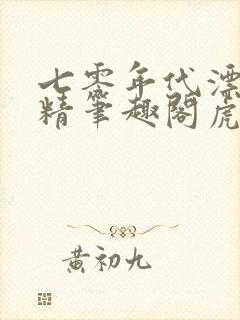 七零年代漂
精笔趣阁虎
黄初九